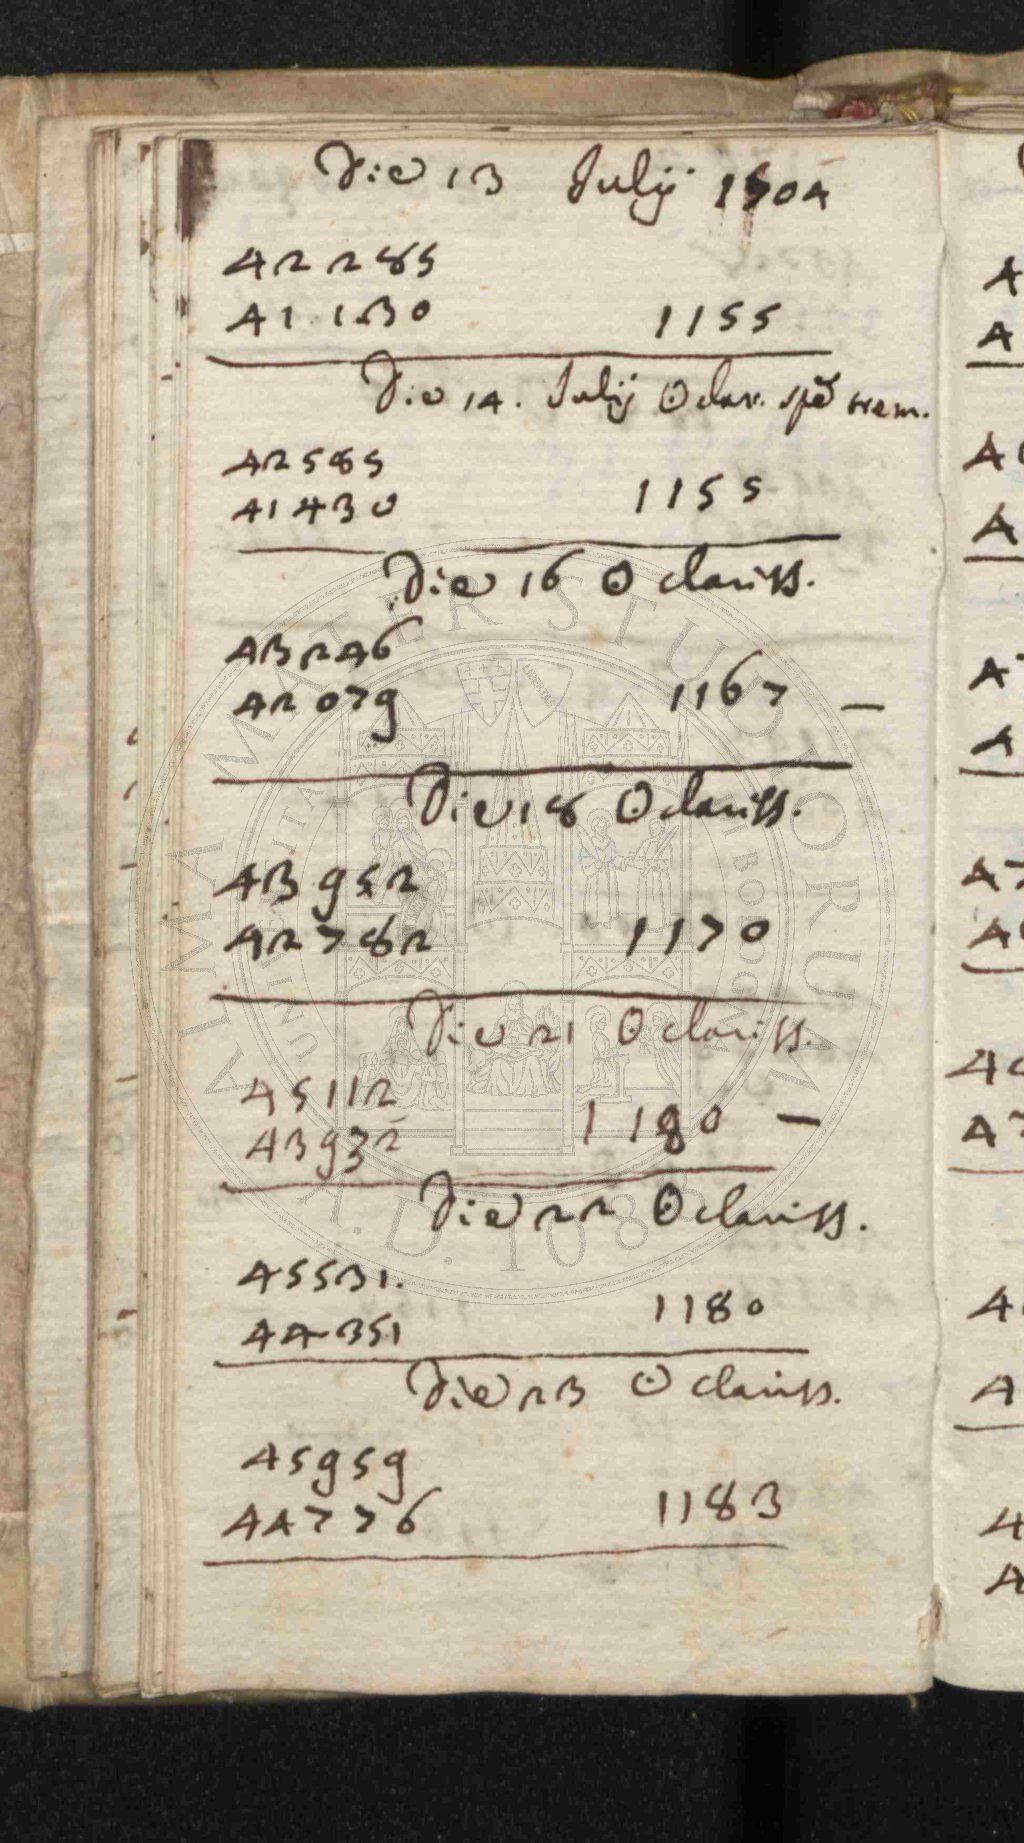 Die 13 Julij 1704
42285
41130 1155
Die 14. Julij ☉ clar. spē trem.
42585
41430 1155
Die 16 ☉ clariss.
43246
42079 1167 —
Die 18 ☉ clariss.
43952
42782 1170
Die 21 ☉ clariss.
45112
43932 1180 —
Die 22 ☉ clariss.
45531.
44351 1180
Die 23 ☉ clariss.
45959
44776 1183
ALMA MATER STUDIORUM
A.D. 1088